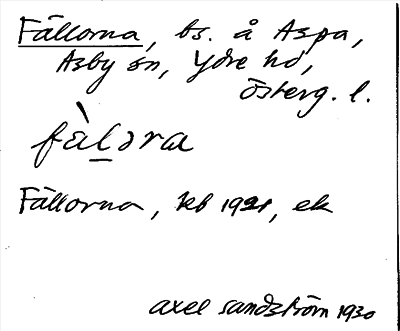 Fällorna, bs. å Aspa,
Asby sn, Ydre hd,
Österg. l.
fàlɔra
Fällorna, kb 1921, ek
axel sandström 1930